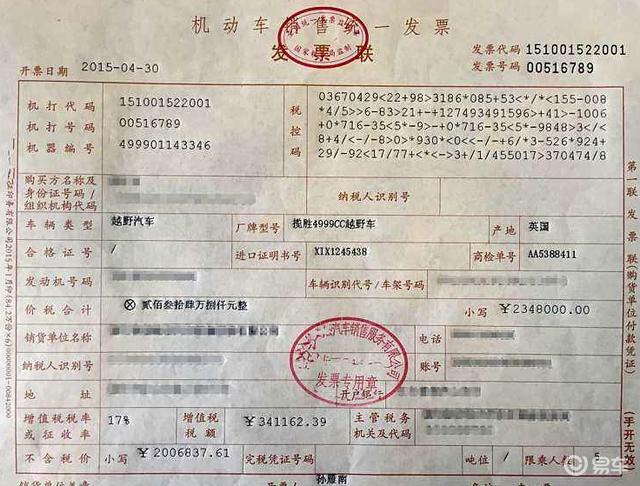 机动车销售统一发票
发票联
发票代码 151001522001
发票号码 00516789
开票日期 2015-04-30
机打代码 151001522001
机打号码 00516789
机器编号 499901143346
税控码
03670429<22+98>3186*085+53<*/*<155-008
*4/5>>6-83>21+-+127493491596+/+41>-1006
+0*716-35<5*-9>-+0*716-35<5*-9848>3</<
/8+4/<-/8>0>*930*<0<</-/-+6/*3-526*924+
29/-92<17/77+<*<->3+/1/455017>370474/8
购买方名称及
身份证号码/
组织机构代码
纳税人识别号
车辆类型 越野汽车 厂牌型号 揽胜4999CC越野车 产地 英国
合格证号 / 进口证明书号 XIX1245438 商检单号 AA5388411
发动机号码 车辆识别代号/车架号码
价税合计 ⊗ 贰佰叁拾肆万捌仟元整 小写 ¥2348000.00
销货单位名称 电话
纳税人识别号 账号
地址 开户银行
汽车销售服务有限公司
发票专用章
增值税税率
或征收率 17% 增值税
税额 ¥341162.39 主管税务
机关及代码
不含税价 小写 ¥2006837.61 完税凭证号码 吨位 / 限乘人数 5
销货单位盖章 孙雁南
第一联 发票联(购货单位付款凭证)
(手开无效)
易车